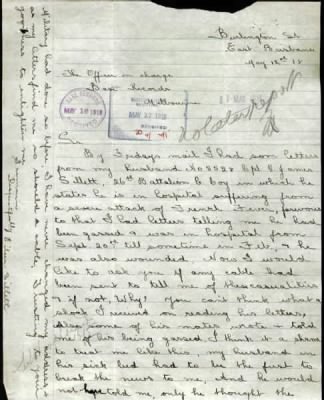 Burlington St
East Brisbane
May 18th 18
The Officer in charge
Base Records
Melbourne
No later report
MAY 22 1918
Sir
By Fridays mail I had some letters
from my husband No 8928 Cpl C James
Sillett, 26th Battalion B Coy in which he
states he is in hospital suffering from
a severe attack of fever. Previous
to that I had letters telling me he had
been gassed & was in hospital from
Sept 20th till sometime in Feb, & he
was also wounded. Now I would
like to ask you if any cable had
been sent to tell me of these casualties
& if not, Why? You can't think what a
shock I received on reading his letters,
Also some of his mates wrote & told
me of his being gassed. I think it a shame
to treat me like this, my husband in
his sick bed had to be the first to
break the news to me, And he would
not have told me, only he thought the
Military had done so before. I have never changed my address &
as my letters find me so should a cable, Trusting to your
goodness to enlighten me
Sillett